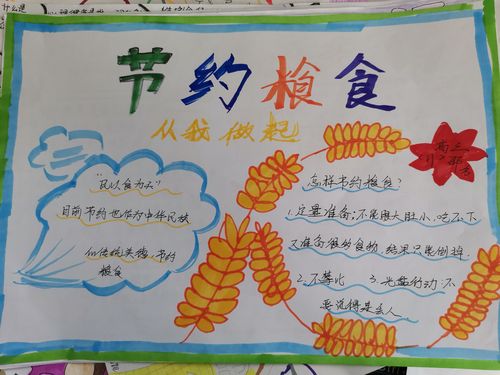 节约粮食
从我做起
"民以食为天"
目前节约也作为中华民族
的传统美德,节约
粮食
怎样节约粮食?
1.定量准备:不能眼大肚小,吃不下
又准备很多食物,结果只能倒掉.
2.不攀比 3.光盘行动:不
要觉得是丢人
高三
什么是